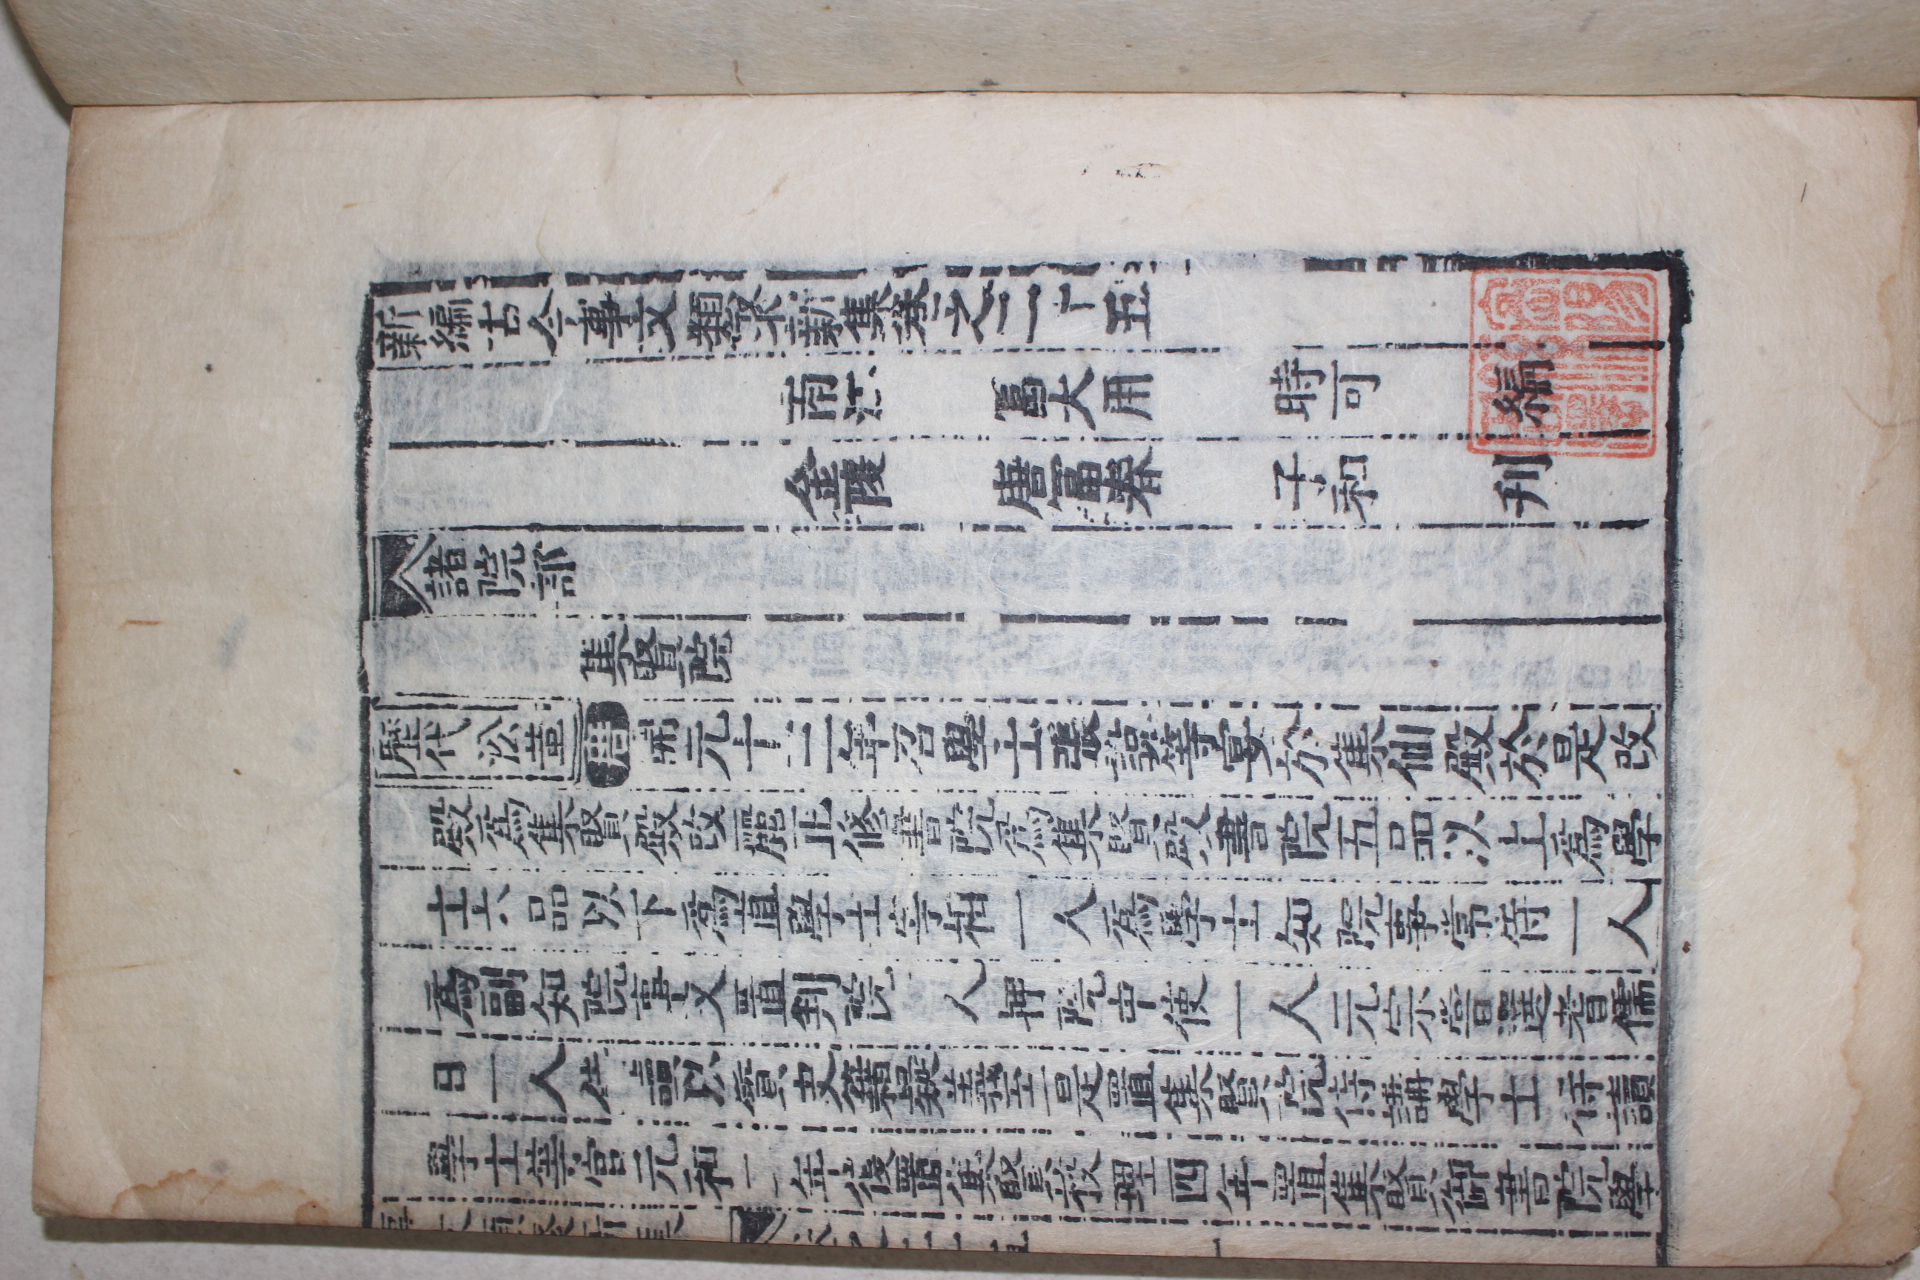 新編古今事文類聚新集卷之二十五
南江 冨大用 時可 編
金陵 唐冨春 子和 刊
諸院部
集賢院
歷代沿革 唐開元十三年召學士張說等宴於集仙殿於是改
殿爲集賢殿改麗正修書院爲集賢殿書院五品以上爲學
士六品以下爲直學士宰相一人爲學士知院事常侍一人
爲副知院事又置判院一人押院中使一人元宗嘗選耆儒
日一人侍讀以質史籍疑義至是置集賢院侍講學士侍讀
學士等官元和二年後置集賢校理四年置集賢御書院學
事文類聚新集 卷之二十五 一